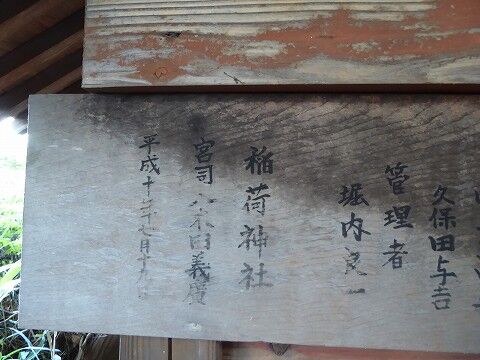 久保田与吉
管理者
堀内良一
稲荷神社
宮司 義廣
平成十年七月十